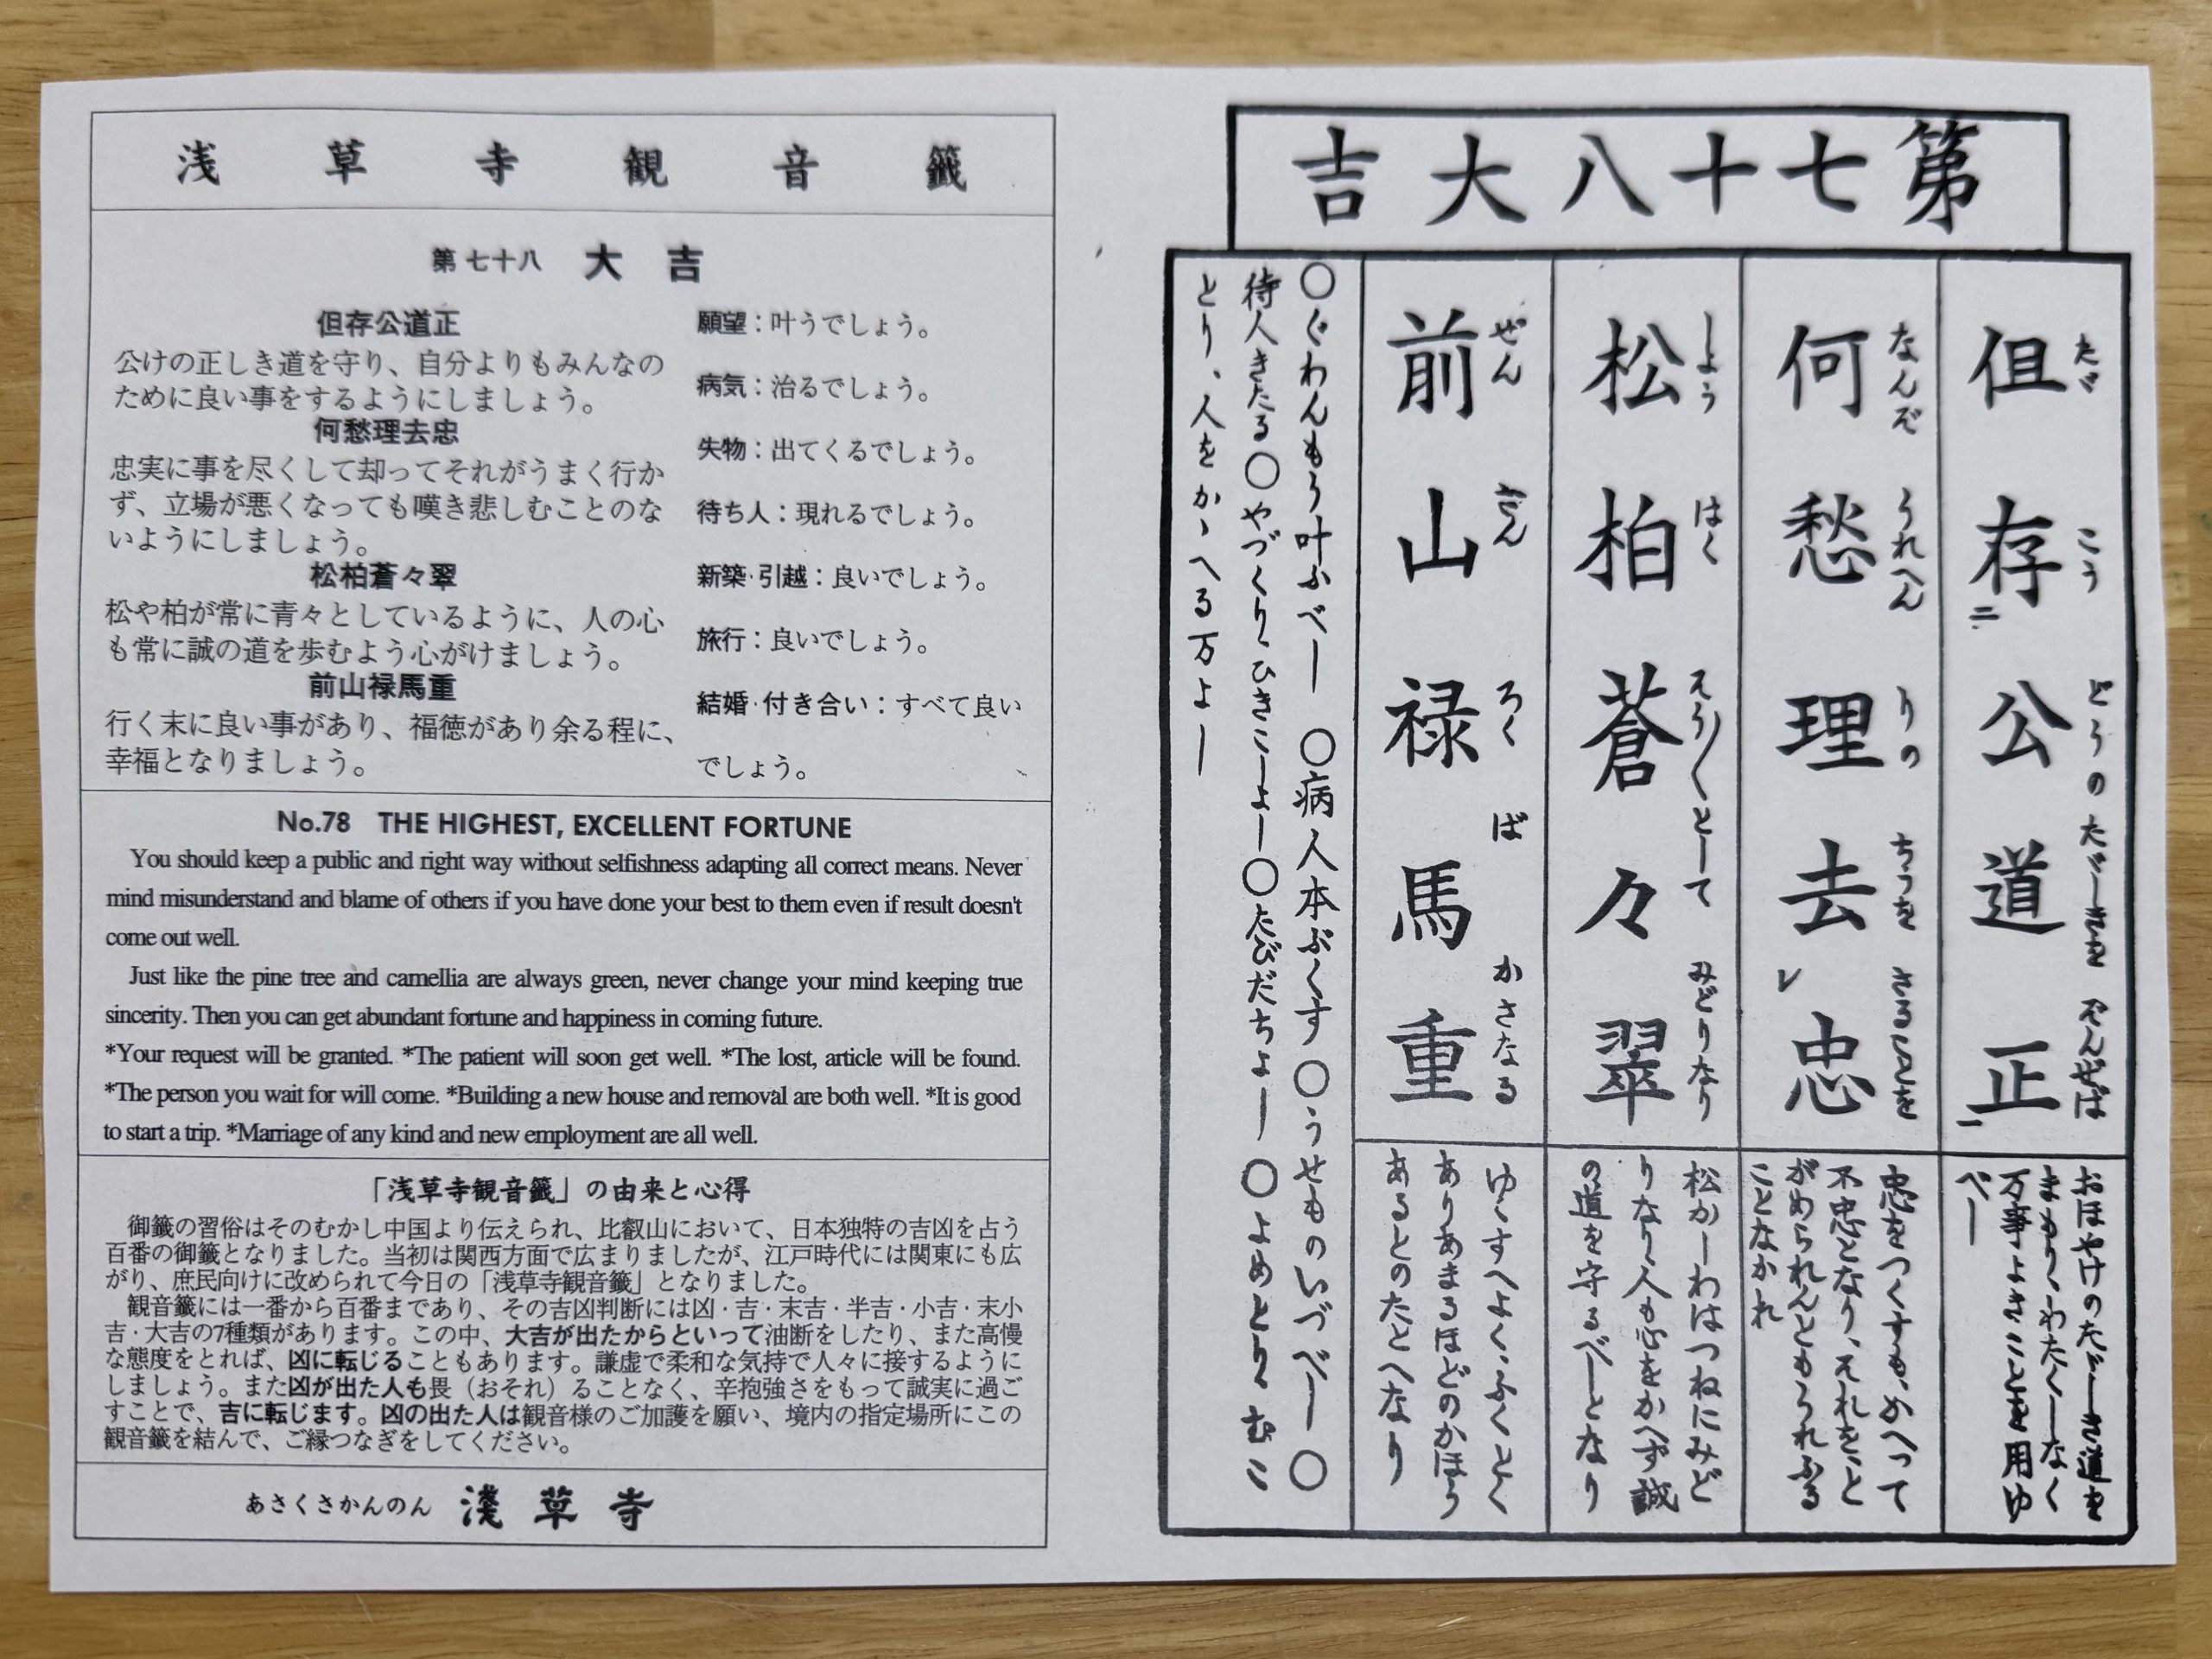 浅草寺観音籤
第七十八 大吉
但存公道正
公けの正しき道を守り、自分よりもみんなの
ために良い事をするようにしましょう。
何愁理去忠
忠実に事を尽くして却ってそれがうまく行か
ず、立場が悪くなっても嘆き悲しむことのな
いようにしましょう。
松柏蒼々翠
松や柏が常に青々としているように、人の心
も常に誠の道を歩むよう心がけましょう。
前山禄馬重
行く末に良い事があり、福徳があり余る程に、
幸福となりましょう。
願望：叶うでしょう。
病気：治るでしょう。
失物：出てくるでしょう。
待ち人：現れるでしょう。
新築·引越：良いでしょう。
旅行：良いでしょう。
結婚·付き合い：すべて良い
でしょう。
No.78 THE HIGHEST, EXCELLENT FORTUNE
You should keep a public and right way without selfishness adapting all correct means. Never
mind misunderstand and blame of others if you have done your best to them even if result doesn't
come out well.
Just like the pine tree and camellia are always green, never change your mind keeping true
sincerity. Then you can get abundant fortune and happiness in coming future.
*Your request will be granted. *The patient will soon get well. *The lost, article will be found.
*The person you wait for will come. *Building a new house and removal are both well. *It is good
to start a trip. *Marriage of any kind and new employment are all well.
「浅草寺観音籤」の由来と心得
御籤の習俗はそのむかし中国より伝えられ、比叡山において、日本独特の吉凶を占う
百番の御籤となりました。当初は関西方面で広まりましたが、江戸時代には関東にも広
がり、庶民向けに改められて今日の「浅草寺観音籤」となりました。
観音籤には一番から百番まであり、その吉凶判断には凶·吉·末吉·半吉·小吉·末小
吉·大吉の7種類があります。この中、大吉が出たからといって油断をしたり、また高慢
な態度をとれば、凶に転じることもあります。謙虚で柔和な気持で人々に接するように
しましょう。また凶が出た人も畏（おそれ）ることなく、辛抱強さをもって誠実に過ご
すことで、吉に転じます。凶の出た人は観音様のご加護を願い、境内の指定場所にこの
観音籤を結んで、ご縁つなぎをしてください。
あさくさかんのん 淺草寺
第七十八大吉
但存公道正
たゞ こう どうの たゞしきを ぞんぜば
おほやけのたゞしき道を
まもり、わたくしなく
万事よきことを用ゆ
べし
何愁理去忠
なんぞ うれへん りの ちうを さることを
忠をつくすも、かへって
不忠となり、それをと
がめられんともうれふる
ことなかれ
松柏蒼々翠
しよう はく そう〳〵として みどりなり
松かしわはつねにみど
りなり、人も心をかへず誠
の道を守るべしとなり
前山禄馬重
ぜん ざん ろく ば かさなる
ゆくすへよく、ふくとく
ありあまるほどのかほう
あるとのたとへなり
○ぐわんもう叶ふべし ○病人本ぶくす ○うせものいづべし ○
待人きたる○やづくり、ひきこしよし○たびだちよし ○よめとり、むこ
とり、人をかゝへる万よし